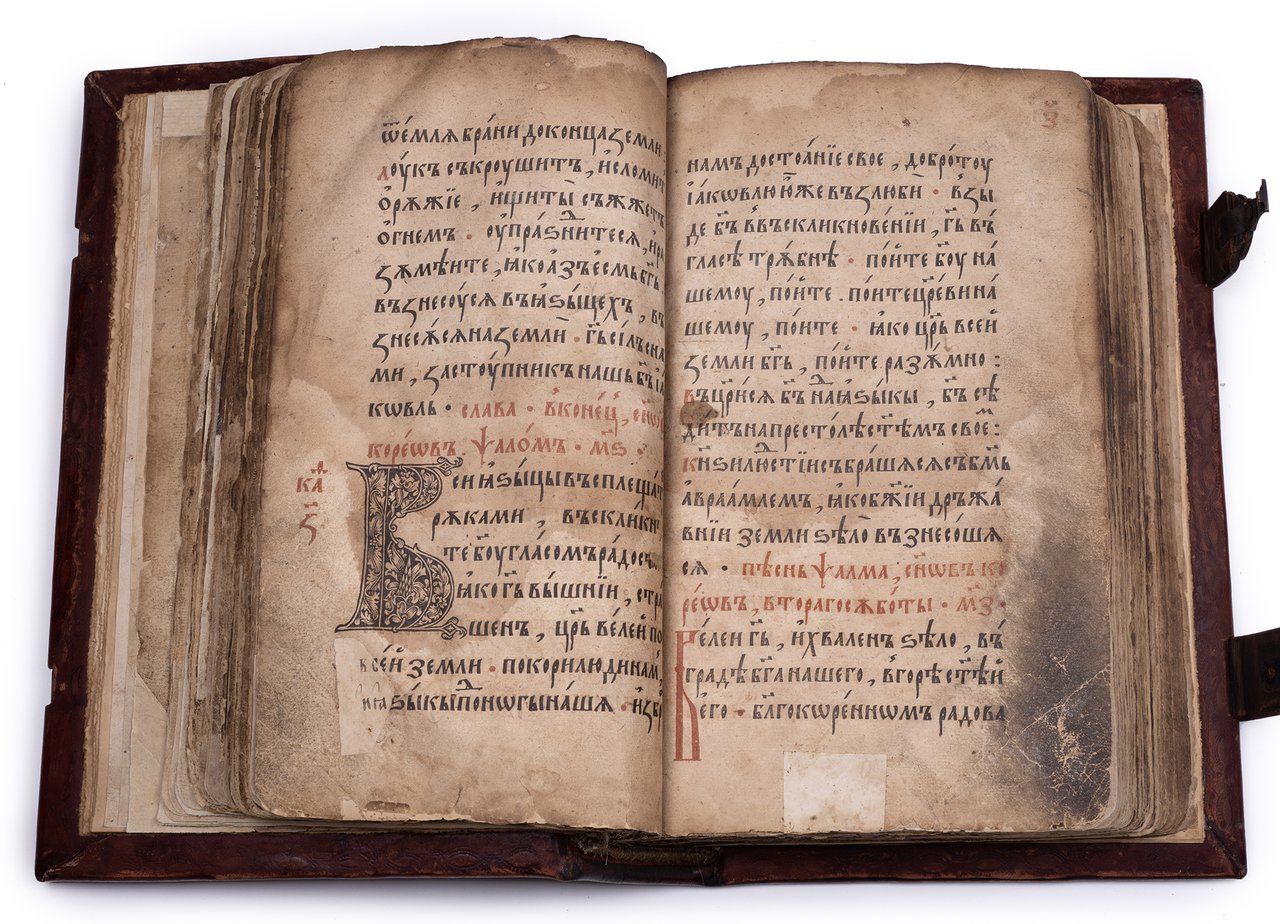 ѿе́мля бра́ни до конца земли
лоу́къ съкроушитъ, и҆сломи
ѻ҆рѫжїе, и҆щиты̀ съжжетъ
ѻ҆гнемъ · ᲂу҆пра́ѕнитеся, и҆ра
ꙁꙋмѣ́ите, ꙗ҆ко а́ꙁъ е҆смь бг҃ъ
въꙁнесоу́ся въ ꙗ҆ѕы́цехъ, въ
ꙁнесꙋ́ся на ꙁемлѝ · гь҃ си́лъ съ на
ми, ꙁастоу́пникъ нашь бг҃ъ і҆а
кѡвль · слава · в конє́ц,
коре́ѡвъ ѱало́мъ · м҃ѕ ·
ка
ꙁ
Вси ꙗ҆ѕы́цы въсплеща́
рꙋками, въскликни
те бо҃у гла́сомъ ра́дос
ꙗ҆ко гь҃ вы́шнїи, стра
шенъ, цр҃ь ве́лей по
всеи̇̀ земли · покори люди нам
и ꙗ҆ѕы́кы под ноѡгы на́шꙗ · и҆ꙁбр
намъ достоѧ́нїе свое, добро́тоу
і҆а́кѡвлю ю҆́же въꙁлюбѝ · вꙁы́
де бг҃ъ въ въскликнове́нїи, гь҃ въ
гла́сѣ трꙋ́бнѣ · по́йте бо҃у на́
шемоу, по́йте · по́ите цр҃еви на́
шемоу, по́ите · ꙗ҆ко цр҃ь всей
ꙁемли бг҃ъ, по́йте раꙁꙋ́мно :
въцр҃и́ся бг҃ъ над ꙗ҆ѕы́кы, бг҃ъ сѣ
ди́тъ на престо́лѣ ст҃ѣмъ своє́м :
кн҃ѕи лю́стїи събра́шяся съ бг҃мь
а҆враа́млемъ, ꙗ҆ко бж҃їи дръжа́
внїи земли ѕѣ̀ло въꙁнесо́шя
ся · пѣ́снь ѱалма, сн҃ѡвъ ко
ре́ѡвъ, втораго сꙋбо́ты · м҃ꙁ ·
Велеи гь҃, и҆ хваленъ ѕѣ̀ло, въ
гра́дѣ бг҃а на́шего, в го́рѣ ст҃ѣ́й
е҆го · бл҃гокѡре́ннѡмъ ра́дова